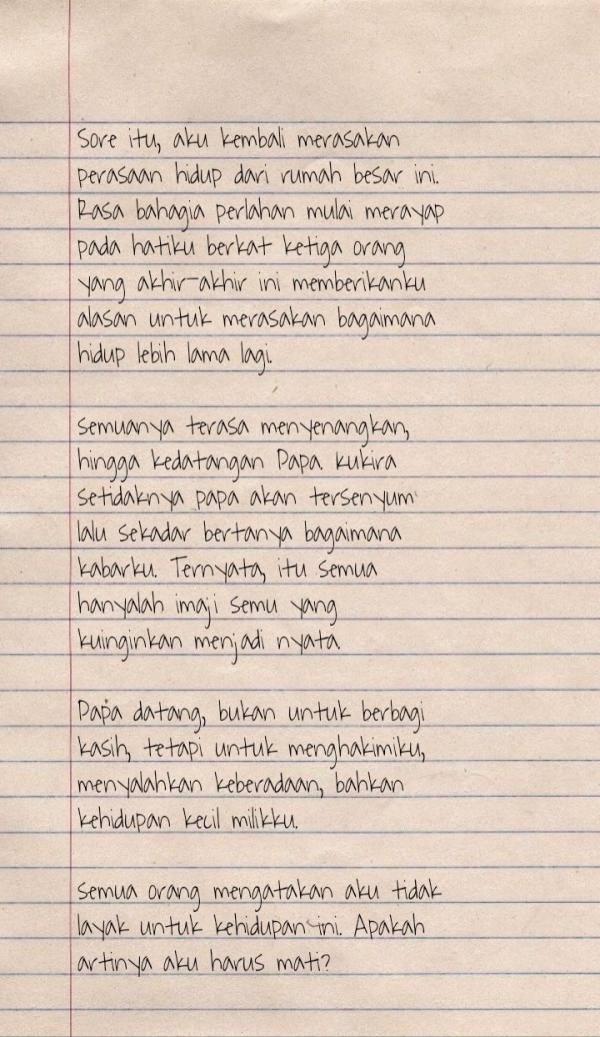 Sore itu, aku kembali merasakan
perasaan hidup dari rumah besar ini.
Rasa bahagia perlahan mulai merayap
pada hatiku berkat ketiga orang
yang akhir-akhir ini memberikanku
alasan untuk merasakan bagaimana
hidup lebih lama lagi.
Semuanya terasa menyenangkan,
hingga kedatangan Papa. Kukira
setidaknya papa akan tersenyum
lalu sekadar bertanya bagaimana
kabarku. Ternyata, itu semua
hanyalah imaji semu yang
kuinginkan menjadi nyata.
Papa datang, bukan untuk berbagi
kasih, tetapi untuk menghakimiku,
menyalahkan keberadaan, bahkan
kehidupan kecil milikku.
Semua orang mengatakan aku tidak
layak untuk kehidupan ini. Apakah
artinya aku harus mati?